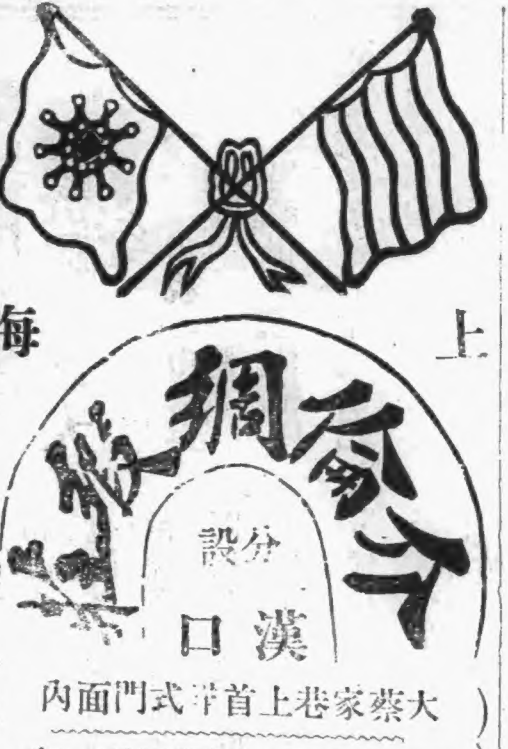 上海
介綸綢緞莊
分設
漢口
大蔡家巷上首洋式門面內)